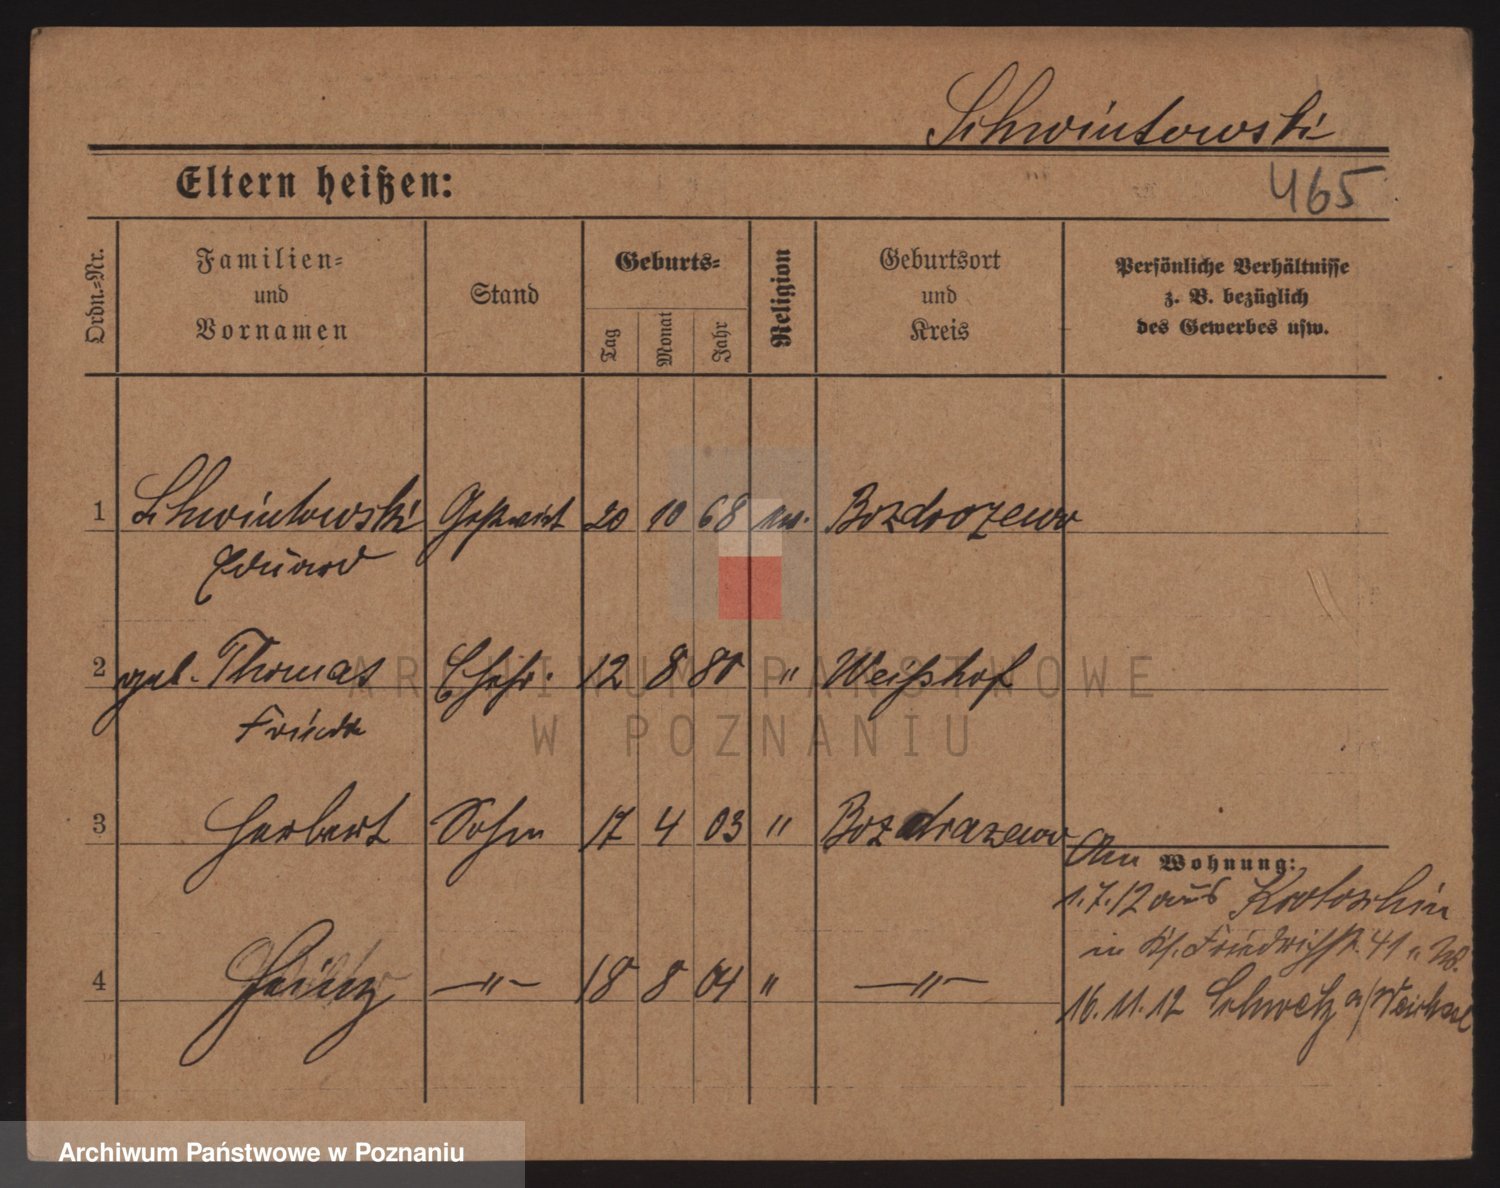 Schwintowski
Eltern heißen:
465
Ordn.-Nr.
Familien-
und
Vornamen
Stand
Geburts-
Tag
Monat
Jahr
Religion
Geburtsort
und
Kreis
Persönliche Verhältnisse
z. B. bezüglich
des Gewerbes usw.
1 Schwintowski Gastwirt 20 10 68 Bozdrozewo
Eduard
2 geb. Thomas Ehefr. 12 8 80 " Weißhof
3 Herbert Sohn 17 4 03 " Bozdrazewo
An Wohnung:
1.7.12 aus Krotoschin
4 Heinz —"— 18 8 04 " —"—
in Friedrichstr. 41
16.11.12 Schwetz a/Weichsel
ARCHIWUM PAŃSTWOWE
W POZNANIU
Archiwum Państwowe w Poznaniu